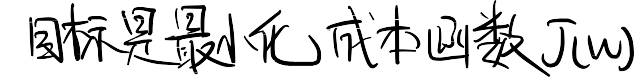 目标是最小化成本函数J(w)